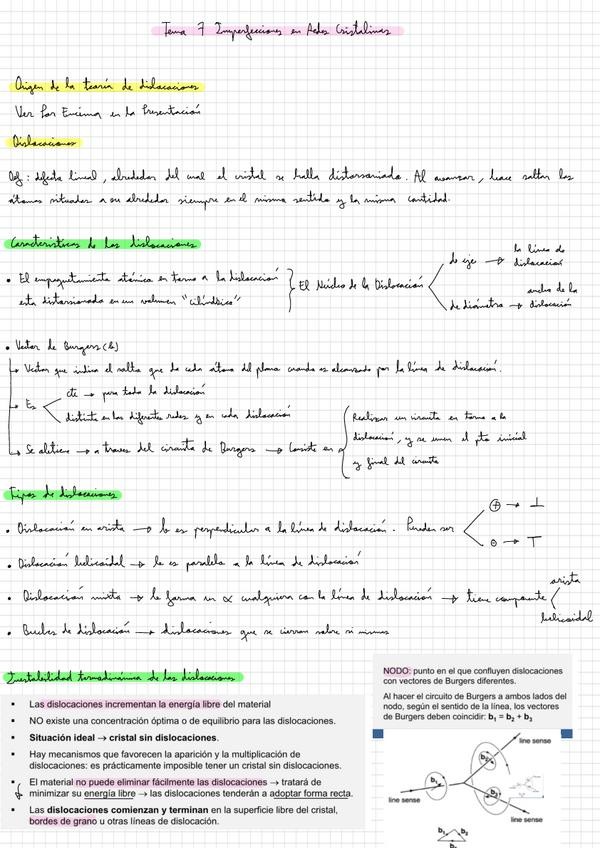 Tema 7 Imperfecciones en Redes Cristalinas
Origen de la teoría de dislocaciones
Ver Por Encima en la Presentación
Dislocaciones
Def: defecto lineal, alrededor del cual el cristal se halla distorsionado. Al avanzar, hace saltar los
átomos situados a su alrededor siempre en el mismo sentido y la misma cantidad.
Características de las dislocaciones
• El empaquetamiento atómico en torno a la dislocación
esta distorsionado en un volumen "cilíndrico"
El Núcleo de la Dislocación
de eje → la línea de
dislocación
de diámetro → ancho de la
dislocación
• Vector de Burgers (b)
→ Vector que indica el salto que da cada átomo del plano cuando es alcanzado por la línea de dislocación.
→ Es
cte → para toda la dislocación
distinto en las diferentes redes y en cada dislocación
→ Se obtiene → a traves del circuito de Burgers → Consiste en
Realizar un circuito en torno a la
dislocación, y se unen el pto inicial
y final del circuito
Tipos de dislocaciones
• Dislocación en arista → b es perpendicular a la línea de dislocación. Pueden ser
⊕ → ⊥
⊖ → T
• Dislocación helicoidal → b es paralelo a la línea de dislocación
• Dislocación mixta → b forma un α cualquiera con la línea de dislocación → tiene componente
arista
helicoidal
• Bucles de dislocación → dislocaciones que se cierran sobre si mismas
Inestabilidad termodinámica de las dislocaciones
▪ Las dislocaciones incrementan la energía libre del material
▪ NO existe una concentración óptima o de equilibrio para las dislocaciones.
▪ Situación ideal → cristal sin dislocaciones.
▪ Hay mecanismos que favorecen la aparición y la multiplicación de
dislocaciones: es prácticamente imposible tener un cristal sin dislocaciones.
▪ El material no puede eliminar fácilmente las dislocaciones → tratará de
minimizar su energía libre → las dislocaciones tenderán a adoptar forma recta.
▪ Las dislocaciones comienzan y terminan en la superficie libre del cristal,
bordes de grano u otras líneas de dislocación.
NODO: punto en el que confluyen dislocaciones
con vectores de Burgers diferentes.
Al hacer el circuito de Burgers a ambos lados del
nodo, según el sentido de la línea, los vectores
de Burgers deben coincidir: b₁ = b₂ + b₃
line sense
b₂
b₁
b₃
line sense
line sense
b₃ b₂
b₁